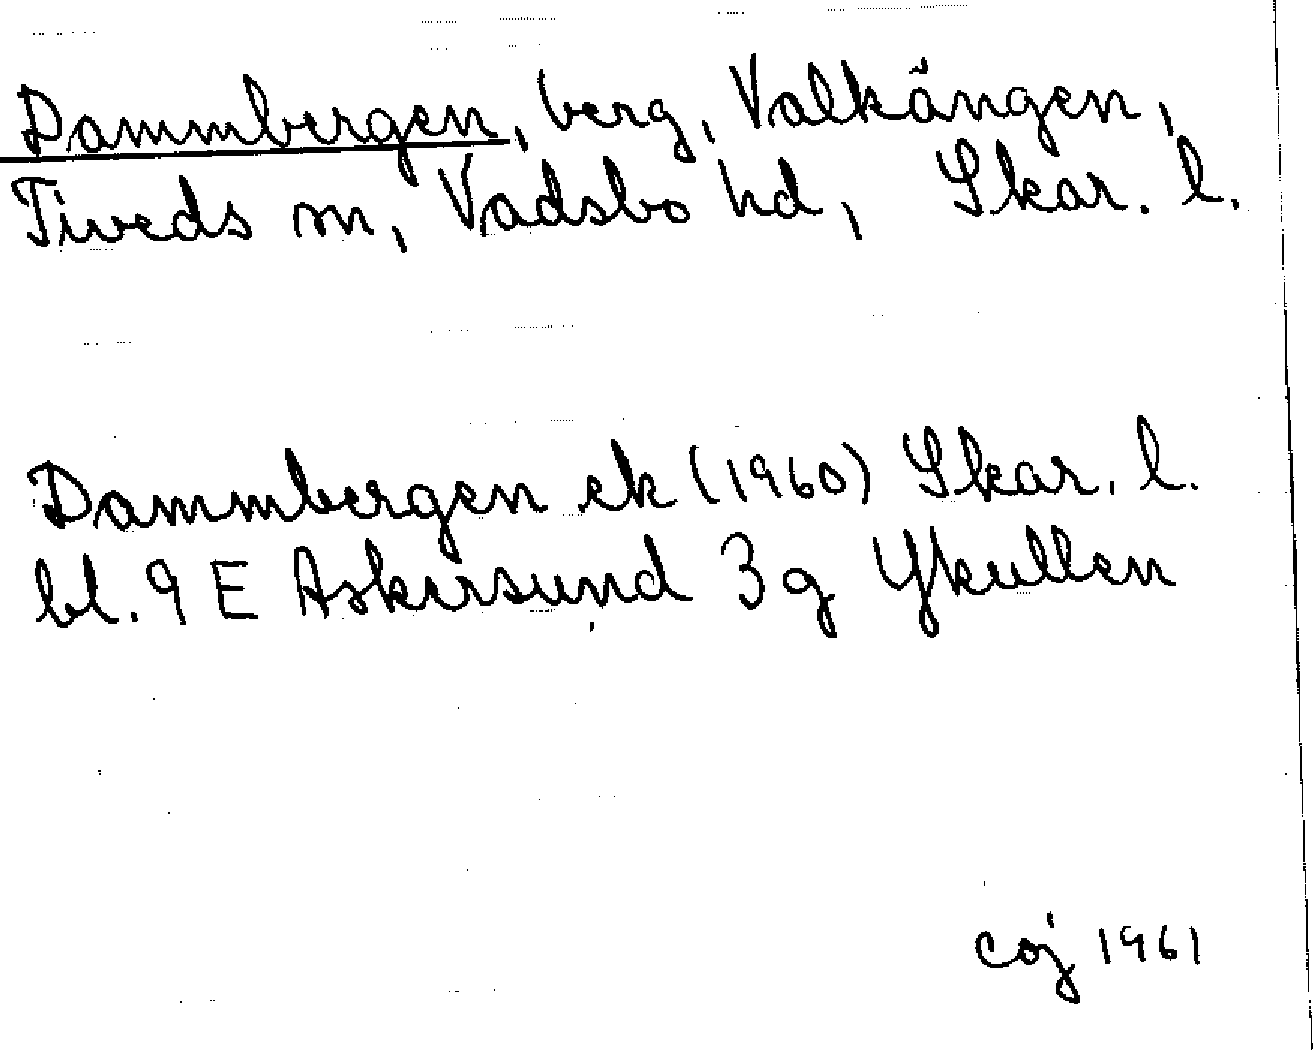 Dammbergen, berg, Valkängen,
Tiveds sn, Vadsbo hd, Skar. l.
Dammbergen ek (1960) Skar. l.
bl. 9 E Askersund 3 g Ykullen
coj 1961